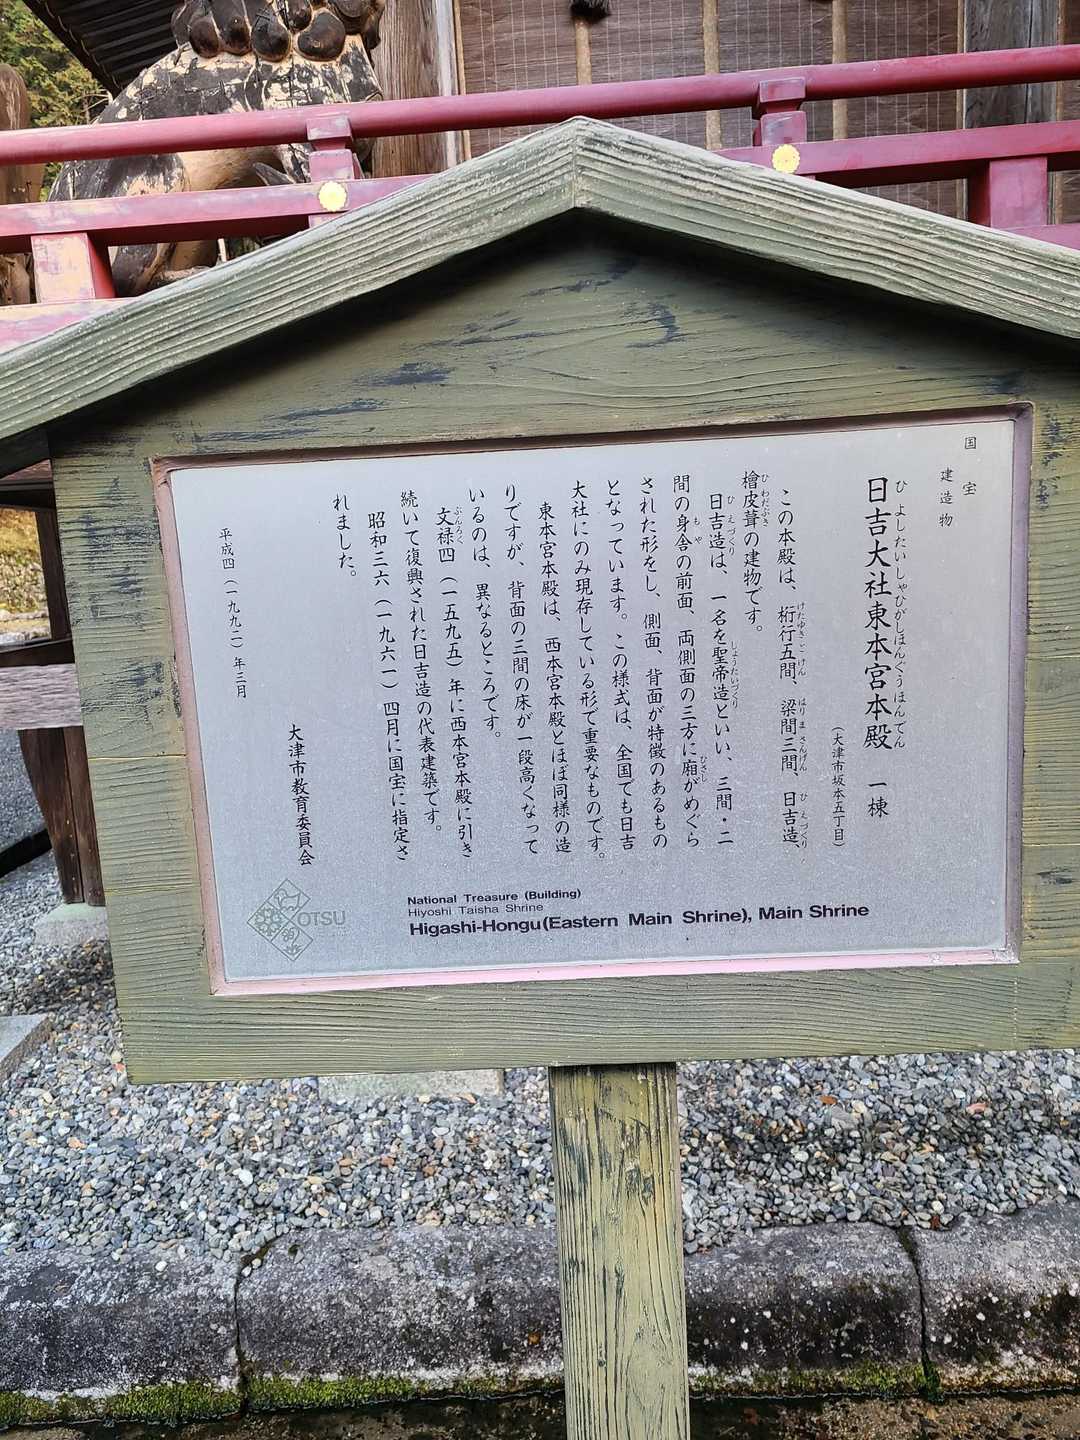 国宝
建造物
日吉大社東本宮本殿 一棟
ひよしたいしゃひがしほんぐうほんでん
(大津市坂本五丁目)
この本殿は、桁行五間、梁間三間、日吉造、
けたゆきごけん はりまさんげん ひえづくり
檜皮葺の建物です。
ひわだぶき
日吉造は、一名を聖帝造といい、三間・二
ひえづくり しょうたいづくり
間の身舎の前面、両側面の三方に廂がめぐら
もや ひさし
された形をし、側面、背面が特徴のあるもの
となっています。この様式は、全国でも日吉
大社にのみ現存している形で重要なものです。
東本宮本殿は、西本宮本殿とほぼ同様の造
りですが、背面の三間の床が一段高くなって
いるのは、異なるところです。
文禄四(一五九五)年に西本宮本殿に引き
ぶんろく
続いて復興された日吉造の代表建築です。
昭和三六(一九六一)四月に国宝に指定さ
れました。
大津市教育委員会
平成四(一九九二)年三月
OTSU
National Treasure (Building)
Hiyoshi Taisha Shrine
Higashi-Hongu(Eastern Main Shrine), Main Shrine